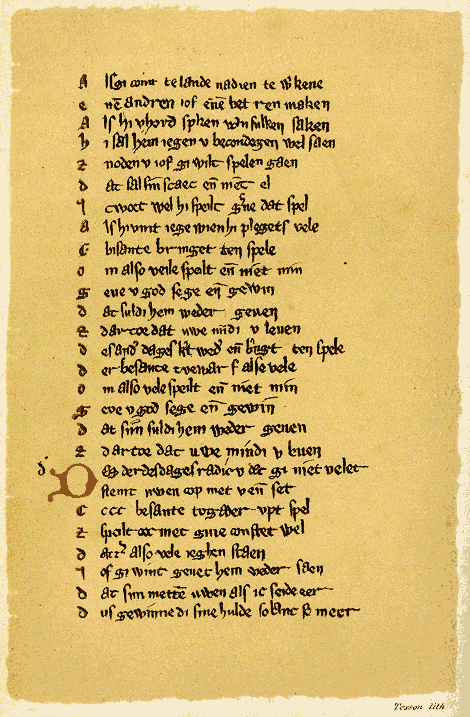 A lsgi comt te lande nadien te wkene
e nē andren iof enē bet ren maken
A ls hi v hord spken van sulken saken
h i sal hem iegen v becondegen wel saen
z noden v iof gi wilt spelen gaen
d at sal sijn scaec eñ niet el
I c woet wel hi speilt gne dat spel
A ls hi vint iege wien hi pleget vele
C bisante bringet ten spele
o m also vele speilt eñ niet min
g eue v god sege eñ gewin
d at suldi hem weder geuen
z dar toe dat uwe mindi v leuen
d es and dages wed eñ ten spele
d er besante twewarf alse vele
o m also vele speilt eñ niet min
g eve v god sege eñ gewin
d at sijn suldi hem weder geuen
z dar toe dat uwe mindi v
d D es derdes dages radic v dat gi niet velet
stemt uwen cop met v eñ set
C ccc besante togader vpt spel
z spilt oec met wel
d also vele ieghen staen
I of gi wint geuet hem weder saen
d at sijn mettē uwen als ic seide eer
d us gewinnedi sine hulde so lanc so meer
Tesson lith